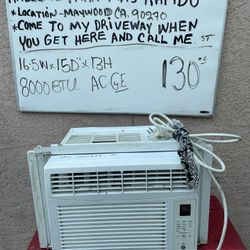 *LOCATION-MAYWOOD CA. 90270
*COME TO MY DRIVEWAY WHEN
YOU GET HERE AND CALL ME
16.5W x 15D" x 13H
8000 BTU. AC GE
130